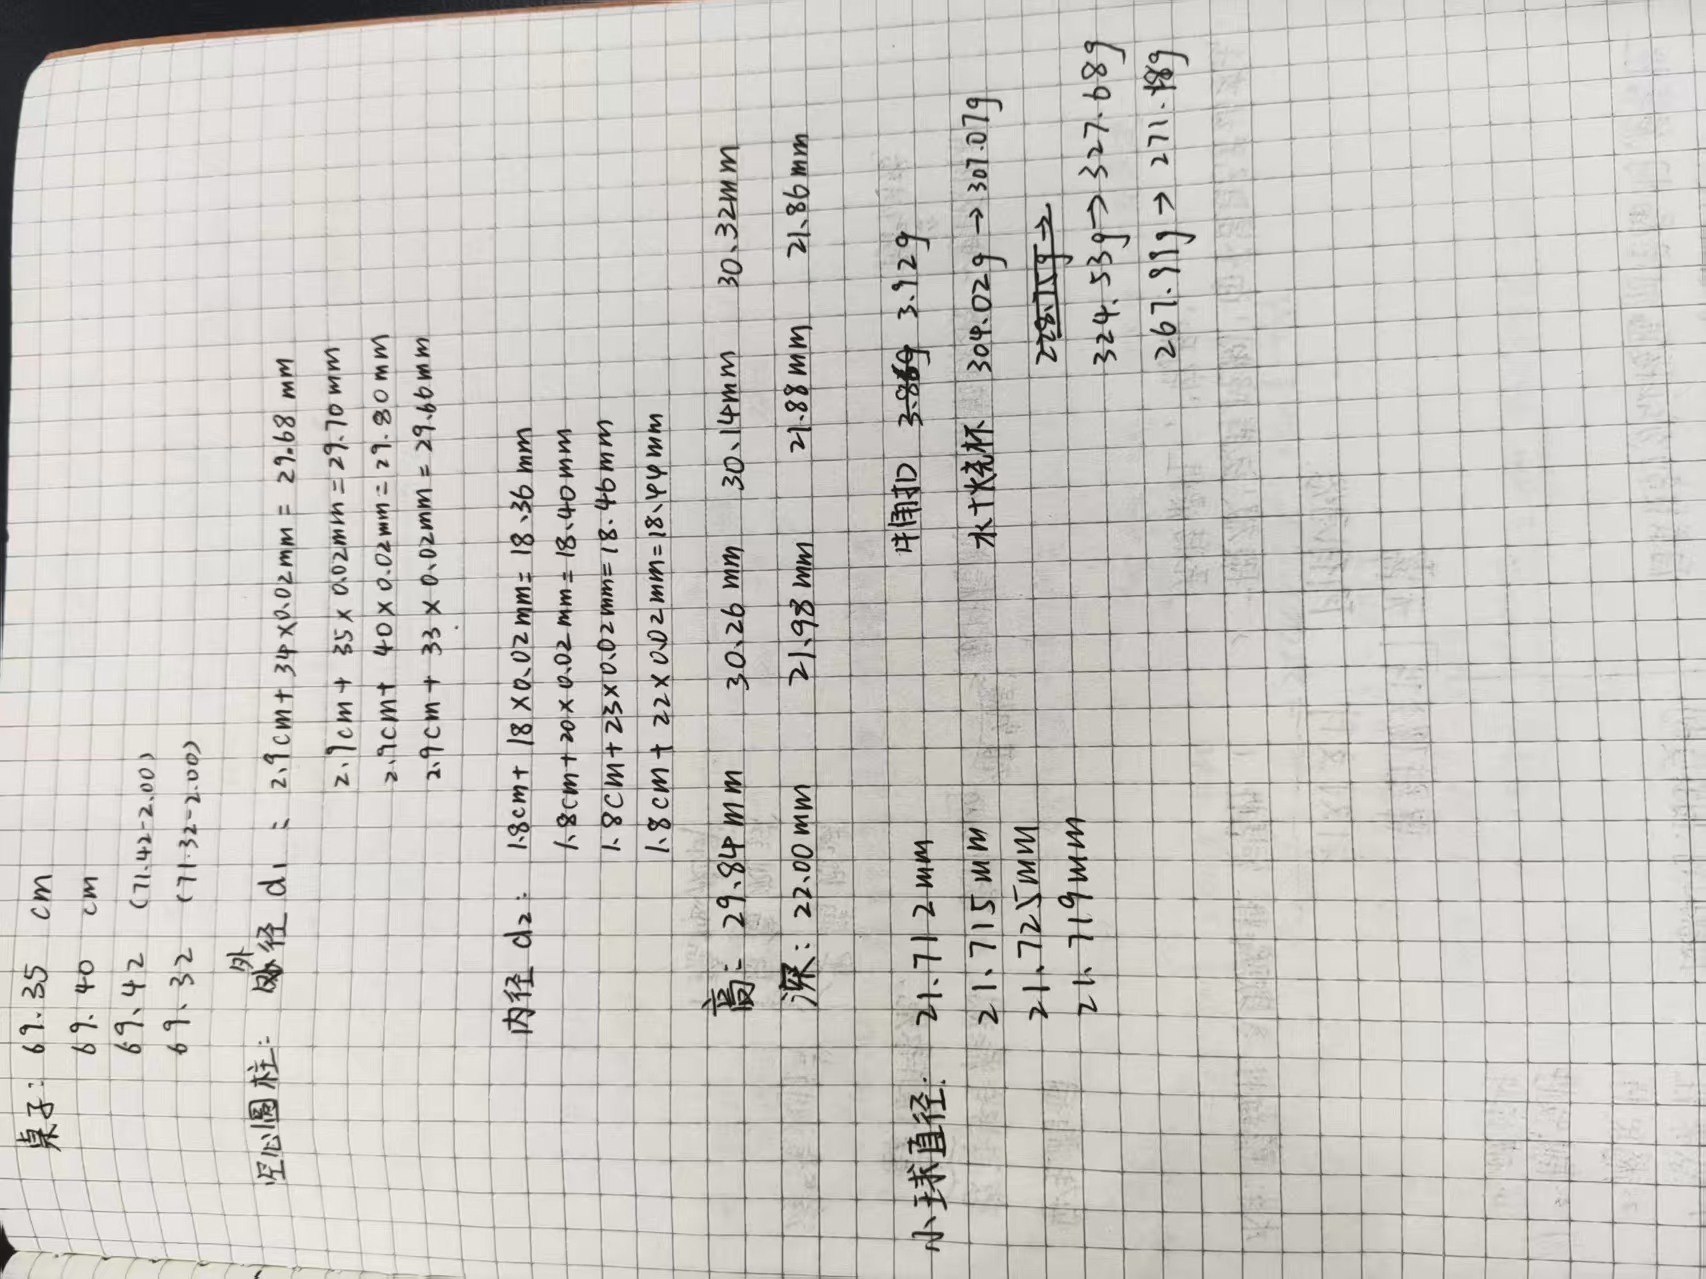 桌子: 69.35 cm
69.40 cm
69.42 (71.42-2.00)
69.32 (71.32-2.00)
空心圆柱: 外径 d₁ : 2.9cm+34×0.02mm = 29.68 mm
2.9cm + 35×0.02mm=29.70mm
2.9cm+ 40×0.02mm=29.80mm
2.9cm + 33×0.02mm=29.66mm
内径 d₂: 1.8cm+ 18×0.02mm=18.36mm
1.8cm+20×0.02mm=18.40mm
1.8cm+23×0.02mm=18.46mm
1.8cm+ 22×0.02mm=18.44mm
高: 29.84mm 30.26mm 30.14mm 30.32mm
深: 22.00mm 21.98mm 21.88mm 21.86mm
小球直径: 21.712mm
21.715mm
21.725mm
21.719mm
3.86g 3.92g
水+烧杯 304.02g→307.07g
228.15g→
324.53g→327.68g
267.99g→271.18g